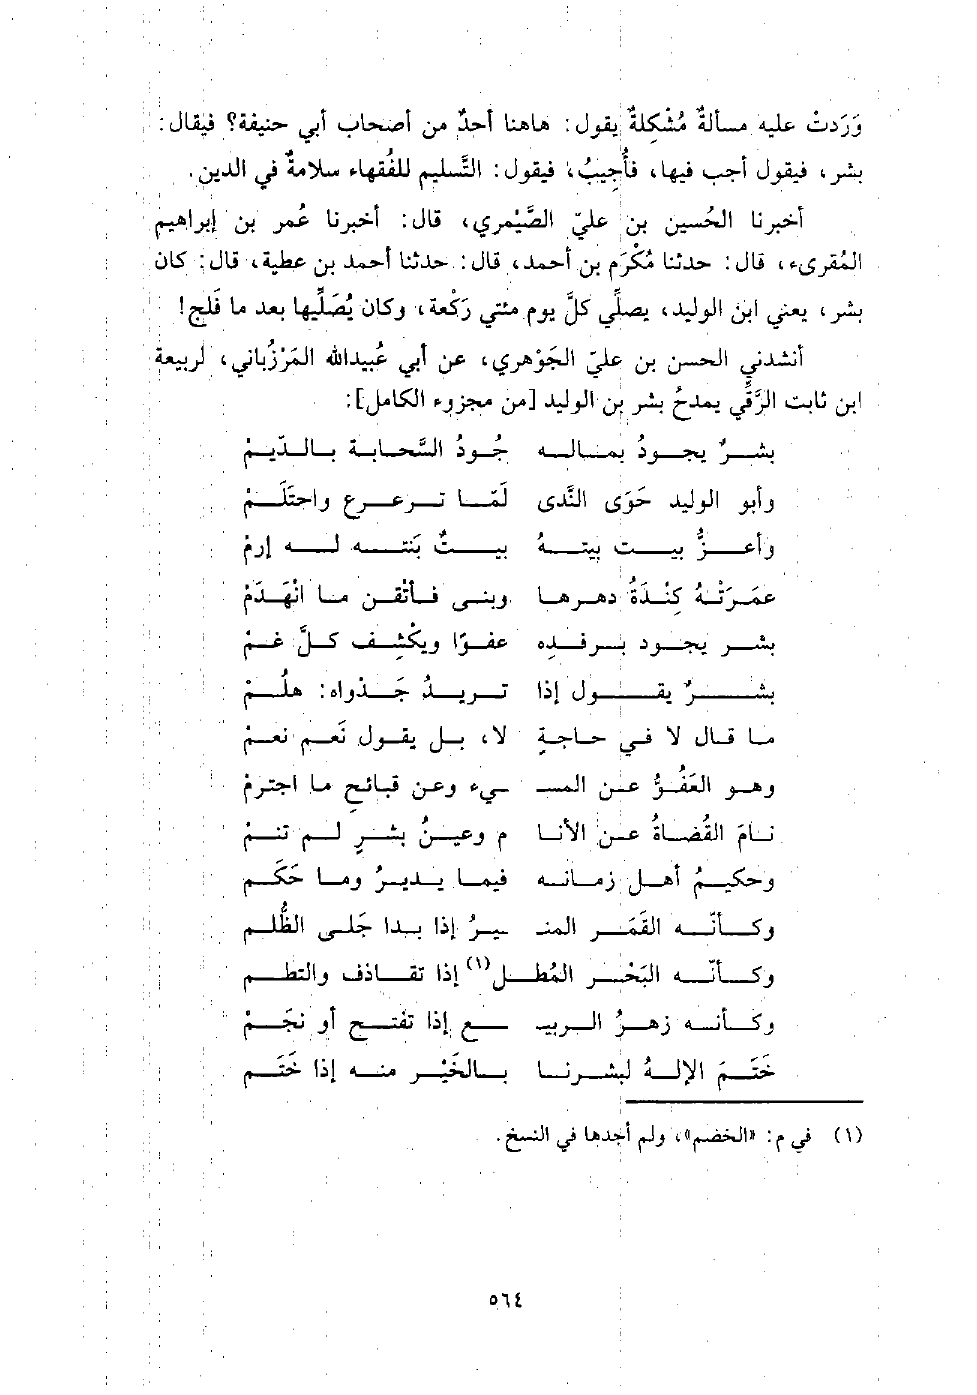 وَرَدتْ عليه مسألةٌ مُشْكِلةٌ يقول: هاهنا أحدٌ من أصحاب أبي حنيفة؟ فيقال:
بشر، فيقول أجب فيها، فأُجيبُ، فيقول: التَّسليم للفُقهاء سلامةٌ في الدين.
أخبرنا الحُسين بن عليّ الصَّيْمري، قال: أخبرنا عُمر بن إبراهيم
المُقرىء، قال: حدثنا مُكْرَم بن أحمد، قال: حدثنا أحمد بن عطية، قال: كان
بشر، يعني ابن الوليد، يصلِّي كلَّ يوم مئتي رَكْعة، وكان يُصَلِّيها بعد ما فَلج!
أنشدني الحسن بن عليّ الجَوْهري، عن أبي عُبيدالله المَرْزُباني، لربيعة
ابن ثابت الرَّقِّي يمدحُ بشر بن الوليد [من مجزوء الكامل]:
بشرٌ يجودُ بمالـه جُودُ السَّحابة بالدِّيَمْ
وأبو الوليد حَوَى النَّدى لَمَّا ترعرع واحتَلَمْ
وأعزُّ بيت بيتهُ بيتٌ بَنَته له إرمْ
عمَرَتْهُ كِنْدَةُ دهرها وبنى فأتْقن ما انْهَدَمْ
بشر يجود برفده عفوًا ويكْشِف كلَّ غمْ
بشرٌ يقول إذا تريدُ جَدْواه: هلُمْ
ما قال لا في حاجةٍ لا، بل يقول نَعم نعمْ
وهو العَفُوُّ عن المسـ ـيء وعن قبائحِ ما اجترمْ
نامَ القُضاةُ عن الأنا م وعينُ بشرٍ لم تنمْ
وحكيمُ أهل زمانه فيما يديرُ وما حَكَم
وكأنّه القَمَر المنـ ـيرُ إذا بدا جَلى الظُّلم
وكأنّه البَحْر المُطل(١) إذا تقاذف والتطم
وكأنه زهرُ الربيـ ـع إذا تفتح أو نجَمْ
خَتَمَ الإلهُ لبشرنا بالخَيْر منه إذا خَتَم
(١) في م: «الخضم»، ولم أجدها في النسخ.
٥٦٤